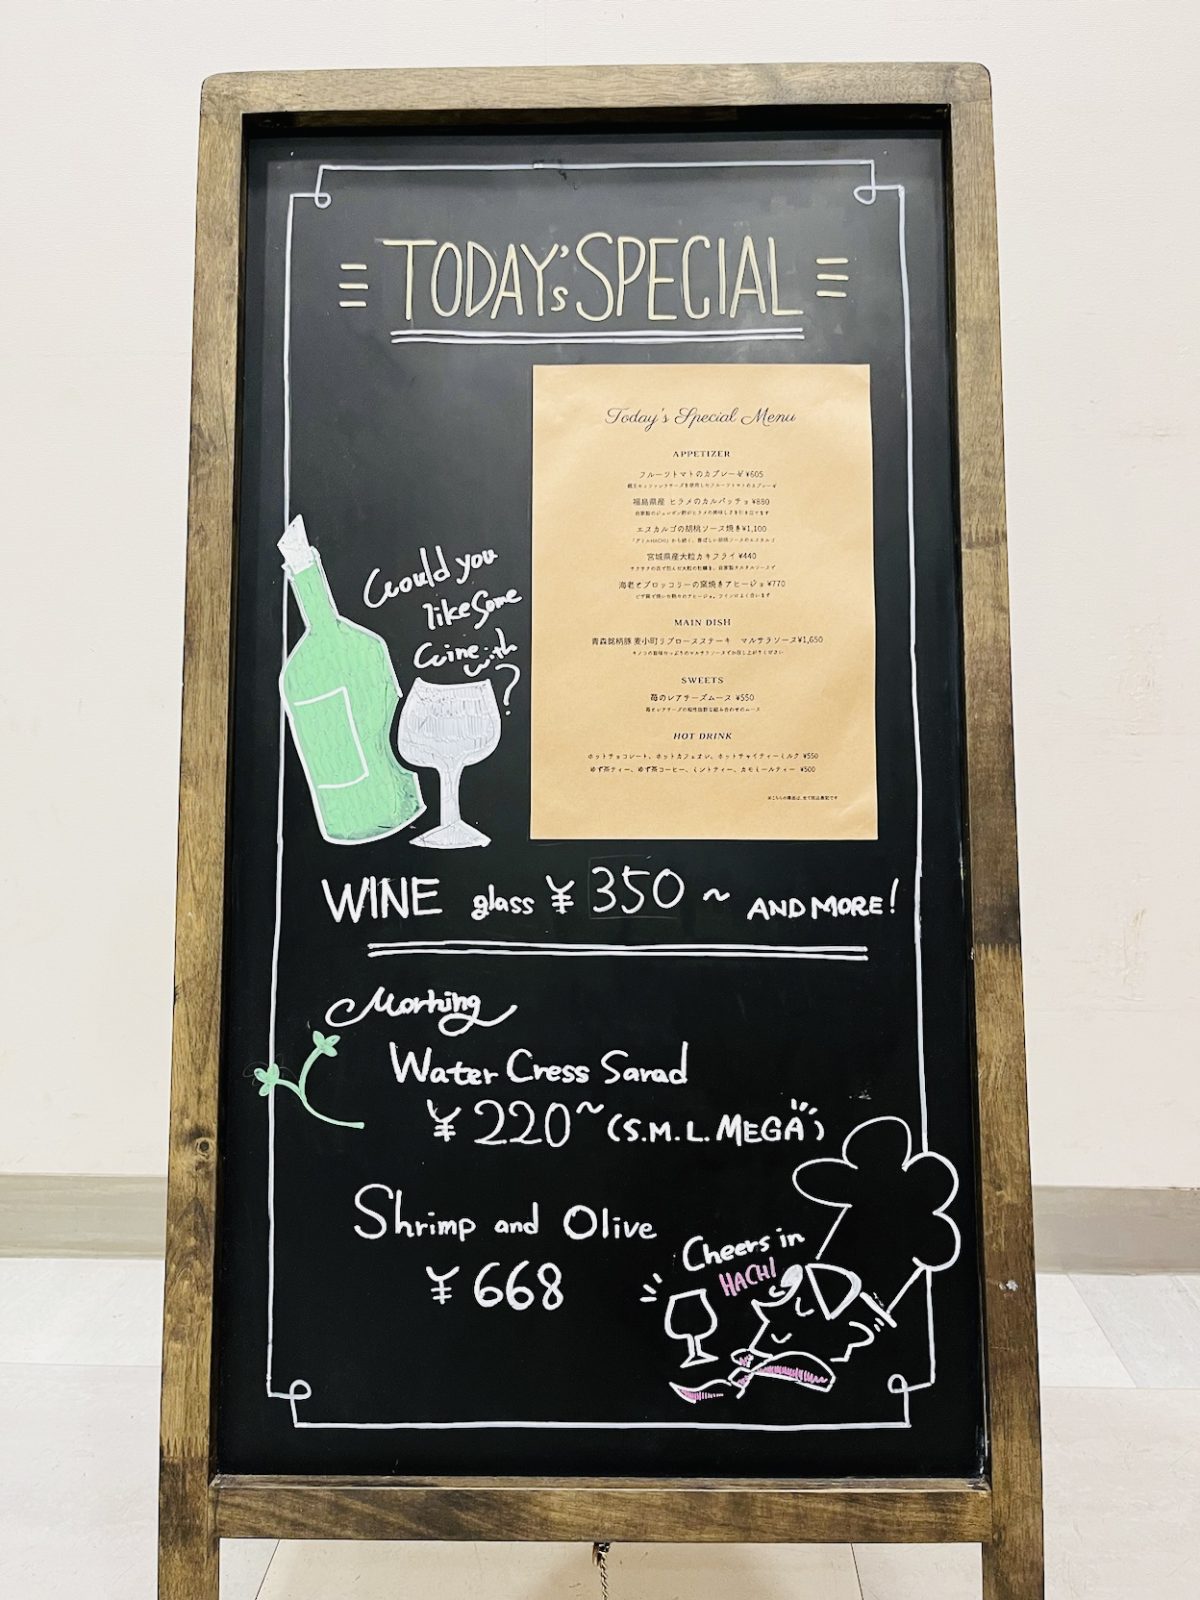 TODAY'S SPECIAL
Today's Special Menu
APPETIZER
フルーツトマトのカプレーゼ ¥605
福島県産 ヒラメのカルパッチョ ¥880
エスカルゴの胡桃ソース焼き ¥1,100
宮城県産大粒カキフライ ¥440
海老とブロッコリーの窯焼きアヒージョ ¥770
MAIN DISH
青森銘柄豚 麦小町リブロースステーキ マルサラソース¥1,650
キノコの旨味たっぷりのマルサラソースでお召し上がりください
SWEETS
苺のレアチーズムース ¥550
苺とレアチーズの相性抜群な組み合わせのムース
HOT DRINK
ホットチョコレート、ホットカフェオレ、ホットチャイティーミルク ¥550
ゆず茶ティー、ゆず茶コーヒー、ミントティー、カモミールティー ¥500
Would you
like some
wine with
?
WINE glass ¥350~ AND MORE!
Morning
Water Cress Sarad
¥220~ (S.M.L.MEGA)
Shrimp and Olive
¥668
Cheers in
HACHI